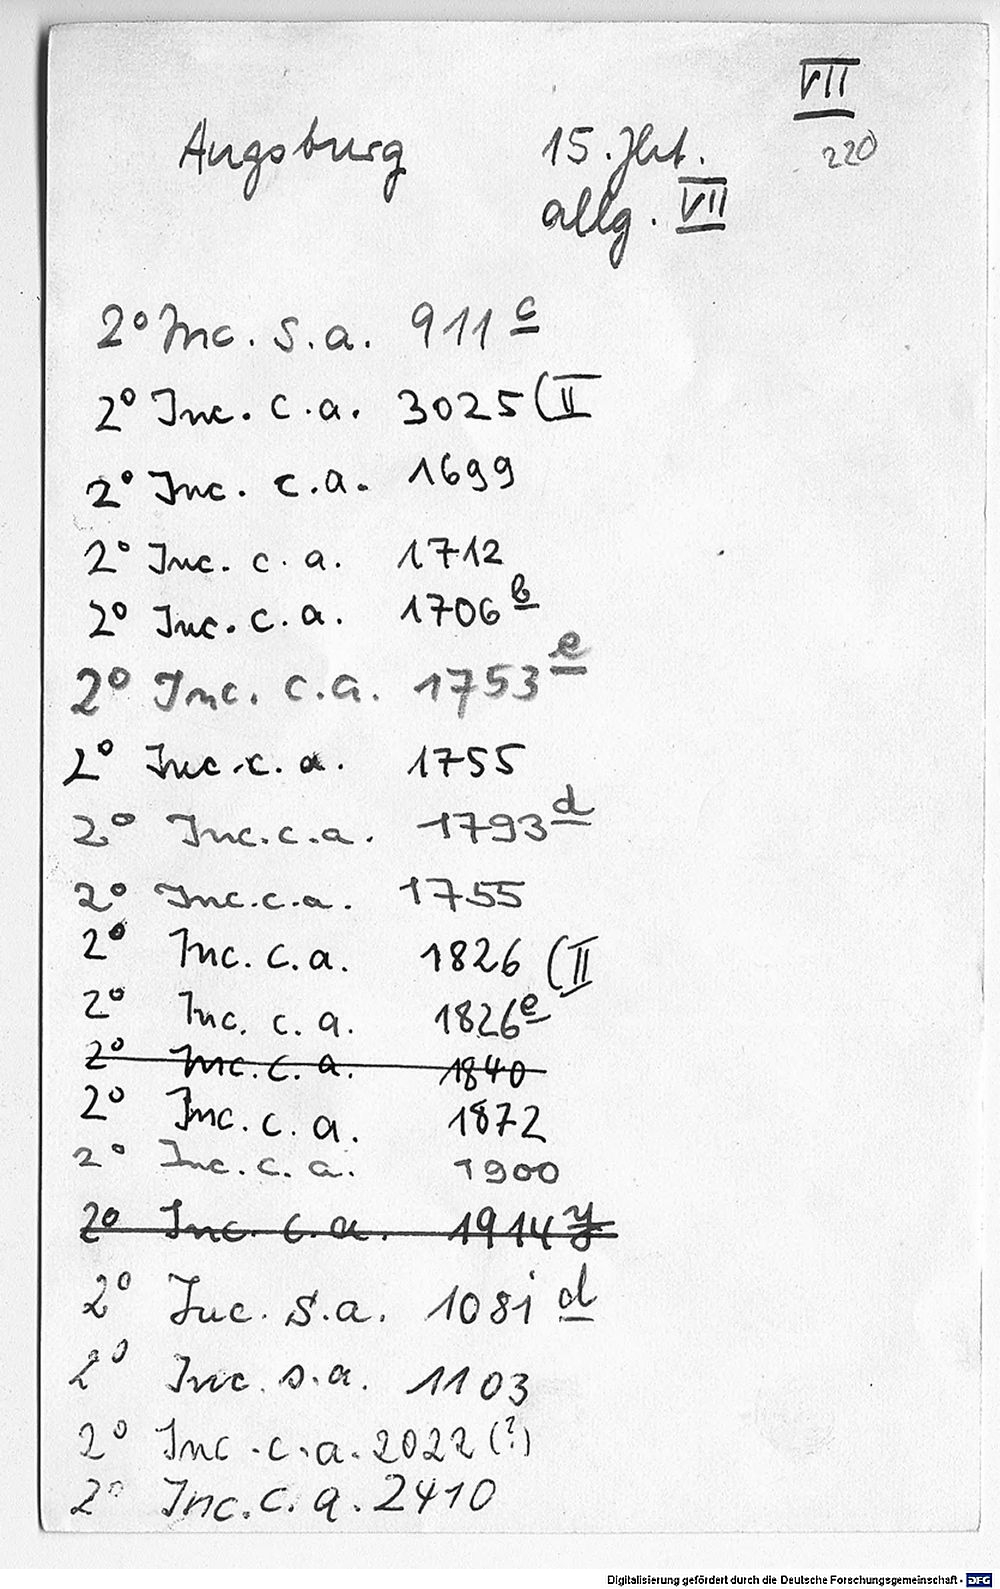 VII
220
Augsburg 15. Jht.
allg. VII
2° Inc. s.a. 911 c
2° Inc. c.a. 3025 (II
2° Inc. c.a. 1699
2° Inc. c.a. 1712
2° Inc. c.a. 1706 b
2° Inc. c.a. 1753 e
2° Inc. c.a. 1755
2° Inc. c.a. 1793 d
2° Inc. c.a. 1755
2° Inc. c.a. 1826 (II
2° Inc. c.a. 1826 e
2° Inc. c.a. 1840
2° Inc. c.a. 1872
2° Inc. c.a. 1900
2° Inc. c.a. 1914 y
2° Inc. s.a. 1081 d
2° Inc. s.a. 1103
2° Inc. c.a. 2022 (?)
2° Inc. c.a. 2410
Digitalisierung gefördert durch die Deutsche Forschungsgemeinschaft - DFG